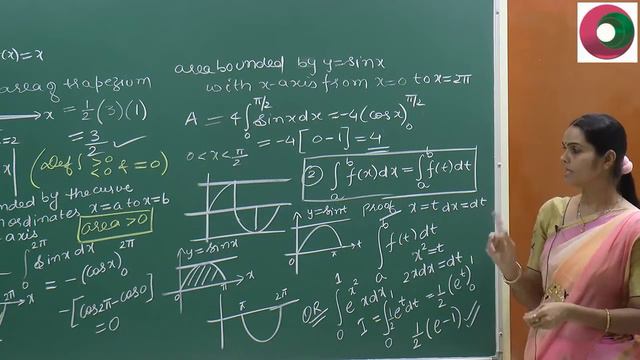 f(x)=x
area of trapezium
x = 1/2 (3)(1)
x=2
= 3/2 ✓
(Def ∫ >0 <0 & =0)
nded by the curve
ordinates x=a to x=b
axis
area>0
∫₀^2π sinx dx = -(cosx)₀^2π
-[cos2π-cos0]
=0
area bounded by y=sinx
with x-axis from x=0 to x=2π
A = 4∫₀^π/2 sinx dx = -4(cosx)₀^π/2
= -4[0-1] = 4
0<x<π/2
② ∫ₐ^b f(x)dx = ∫ₐ^b f(t)dt
y=sint
proof x=t dx=dt
∫ₐ^b f(t)dt
t
y=sinx
x
π 2π
x²=t
2xdx=dt
OR ∫₀^1 e^x² xdx
I = ∫₀^1 1/2 e^t dt = 1/2 (e^t)₀^1
1/2 (e-1)